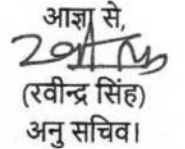 आज्ञा से,
(रवीन्द्र सिंह)
अनु सचिव।